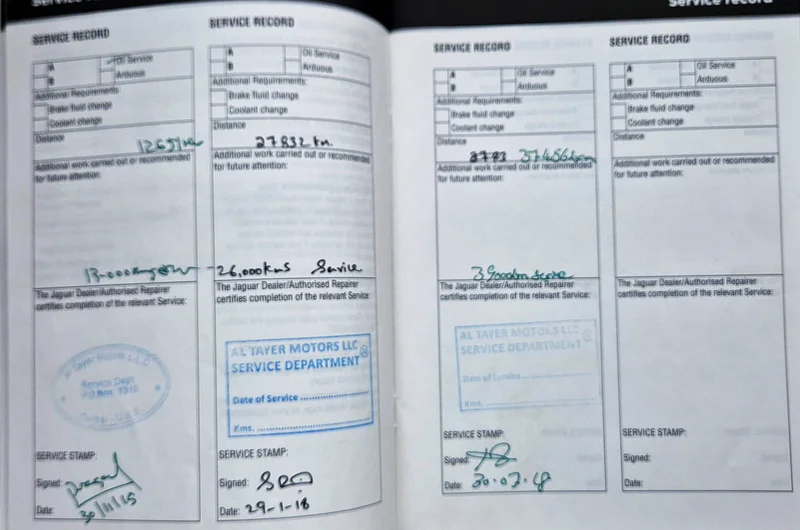 Service record
SERVICE RECORD
A
Oil Service
B
Arduous
Additional Requirements:
Brake fluid change
Coolant change
Distance
Additional work carried out or recommended
for future attention:
The Jaguar Dealer/Authorised Repairer
certifies completion of the relevant Service:
Al Tayer Motors L.L.C
Service Dept
SERVICE STAMP:
Signed:
Date:
30/11/15
SERVICE RECORD
A
Oil Service
B
Arduous
Additional Requirements:
Brake fluid change
Coolant change
Distance
27832 km
Additional work carried out or recommended
for future attention:
26,000kms Service
The Jaguar Dealer/Authorised Repairer
certifies completion of the relevant Service:
AL TAYER MOTORS LLC
SERVICE DEPARTMENT
Date of Service
Kms.
SERVICE STAMP:
Signed:
Date: 29-1-18
SERVICE RECORD
A
Oil Service
B
Arduous
Additional Requirements:
Brake fluid change
Coolant change
Distance
Additional work carried out or recommended
for future attention:
The Jaguar Dealer/Authorised Repairer
certifies completion of the relevant Service:
AL TAYER MOTORS LLC
SERVICE DEPARTMENT
Date of Service
Kms.
SERVICE STAMP:
Signed:
Date:
SERVICE RECORD
A
Oil Service
B
Arduous
Additional Requirements:
Brake fluid change
Coolant change
Distance
Additional work carried out or recommended
for future attention:
The Jaguar Dealer/Authorised Repairer
certifies completion of the relevant Service:
SERVICE STAMP:
Signed:
Date: